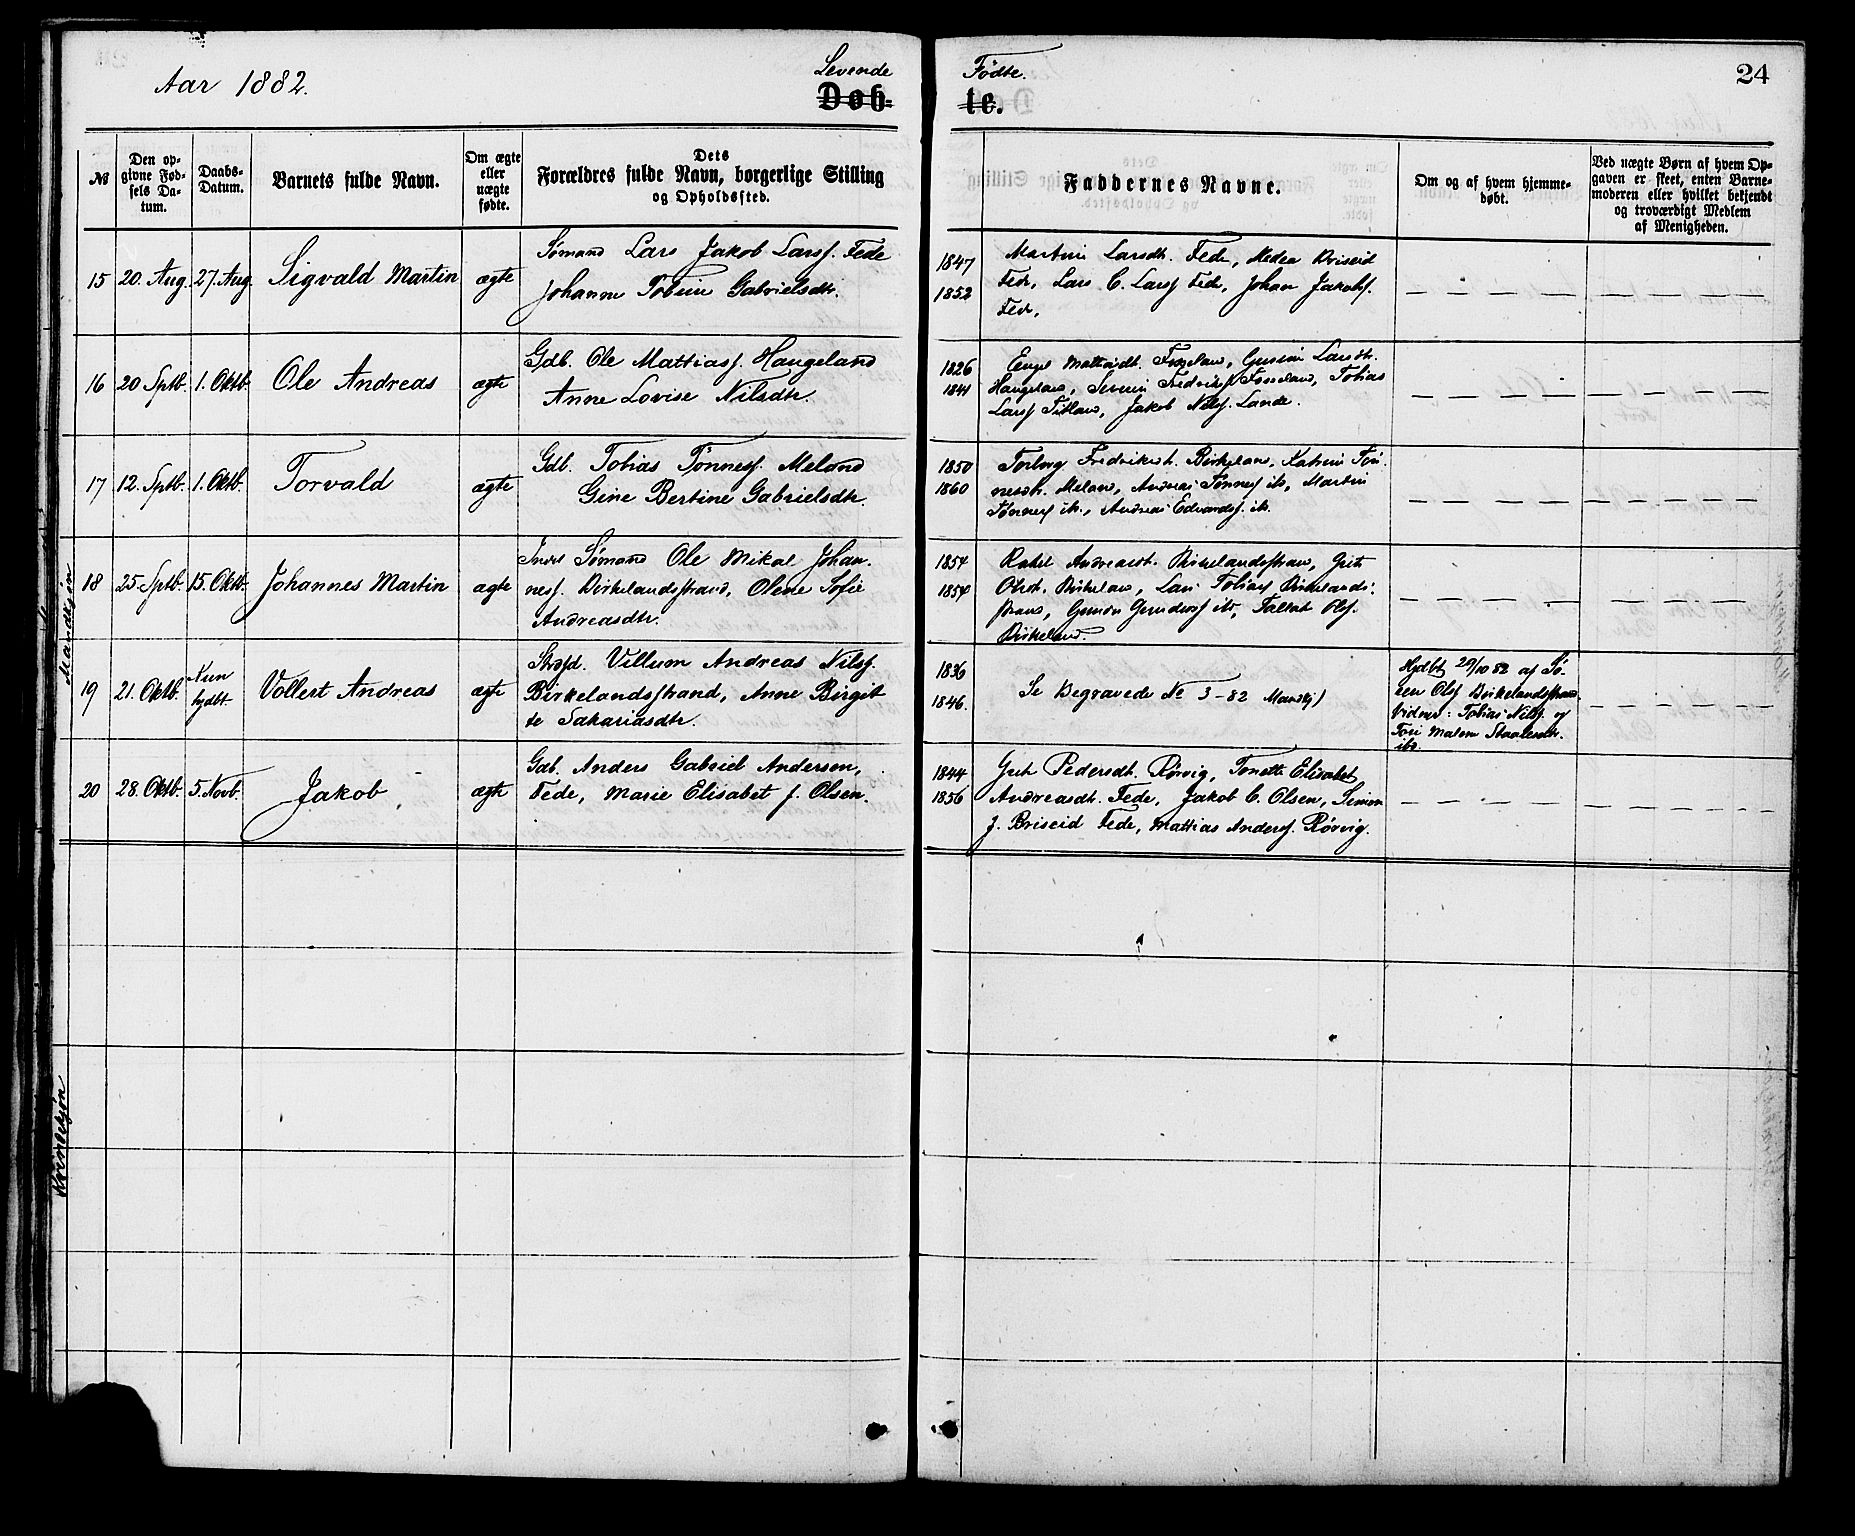 Aar 1882.
Levende Fødte.
Døb- te.
24
№
Den op-
givne Fød-
sels Da-
tum.
Daabs-
Datum.
Barnets fulde Navn.
Om ægte
eller
uægte
fødte.
Dets
Forældres fulde Navn, borgerlige Stilling
og Opholdssted.
Faddernes Navne.
Om og af hvem hjemme-
døbt.
Ved uægte Børn af hvem Op-
gaven er skeet, enten Barne-
moderen eller hvilket bekjendt
og troværdigt Medlem
af Menigheden.
Mandkjøn
15 20. Aug. 27. Aug. Sigvald Martin ægte
Sømand Lars Jakob Larss. Fede
Johanne Tobine Gabrielsdtr.
1847
1852
Martine Larsdt. Fede, Medea Briseid
Fede, Lars C. Larss Fede, Johan Jakobs.
Fede,
16 20 Sptb. 1. Oktb. Ole Andreas ægte
Gdb. Ole Mattiass. Haugeland
Anne Lovise Nilsdtr.
1826
1841
Mattiasdt. Larsdt.
Haugeland, Severin Fredriks Tobias
Larss Jakob Nilss. Lande.
17 12. Sptb. 1. Oktb. Torvald ægte
Gdb. Tobias Tønness. Meland
Gine Bertine Gabrielsdtr.
1850
1860
Torborg Fredriksdt. Birkeland, Katrine Tøn-
nesdt. Meland, Andreas Tønness ib, Martin
Tønness ib., Andreas Edvards. ib.
18 25. Sptb. 15. Oktb. Johannes Martin ægte
Inds Sømand Ole Mikal Johan-
ness. Birkelandsstrand, Olene Sofie
Andreasdtr.
1854
1854
Rakel Andreasdt. Birkelandsstrand, Grete
Olsdt. Birkeland, Lars Tobias Birkelands-
strand, Gunder Gunders ib, Olss.
Birkeland.
19 21. Oktb. Kun
hjdbt. Vollert Andreas ægte
Villum Andreas Nilss.
Birkelandsstrand, Anne Birgit-
te Sakariasdtr.
1836
1846.
Se Begravede № 3-82 Mandkj)
Hjdbt 29/10 82 af Sø-
ren Olss Birkelandsstrand.
Vidner: Tobias Nilss. og
Malene Staalesdt.
ibd.
20 28. Oktb. 5. Novb. Jakob ægte
Gdb. Anders Gabriel Andersen,
Fede, Marie Elisabet f. Olsen.
1844
1856
Grete Pedersdt. Rørvig, Tonette Elisabet
Andreasdt. Fede, Jakob C. Olsen, Simon
J. Briseid Fede, Mattias Anders. Rørvig.
Kvindekjøn